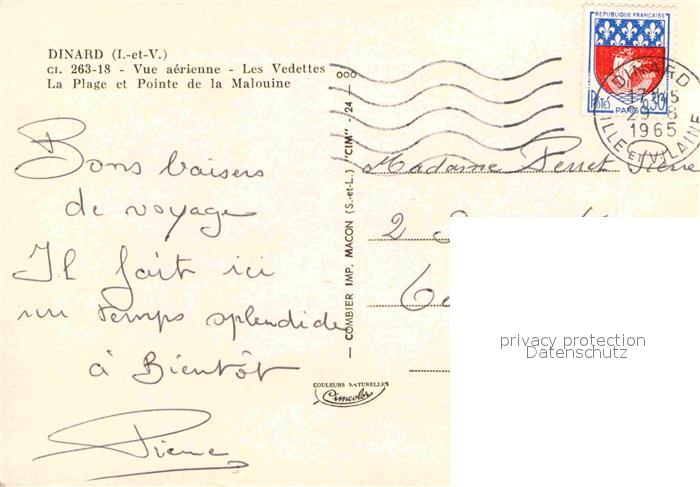 DINARD (I.-et-V.)
CI. 263-18 - Vue aérienne - Les Vedettes
La Plage et Pointe de la Malouine
Bons baisers
de voyage
Il fait ici
un temps splendide
à Bientôt
Pierre
— COMBIER IMP. MACON (S.-et-L.) "CIM" - 24 — 000
COULEURS NATURELLES
Cimcolor
REPUBLIQUE FRANÇAISE
POSTES PARIS 0,30
DINARD
1965
ILLE ET VILAINE
Madame Perret Pierre
2
privacy protection
Datenschutz